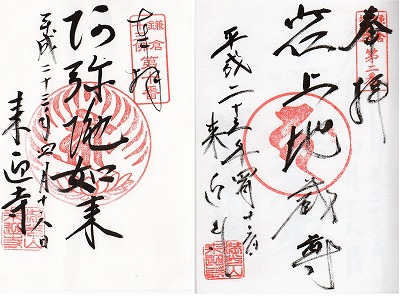 奉拝
鎌倉
第二番
岩上地蔵尊
平成二十三年四月
来迎寺
奉拝
鎌倉
阿弥陀如来
平成二十三年四月十八日
来迎寺